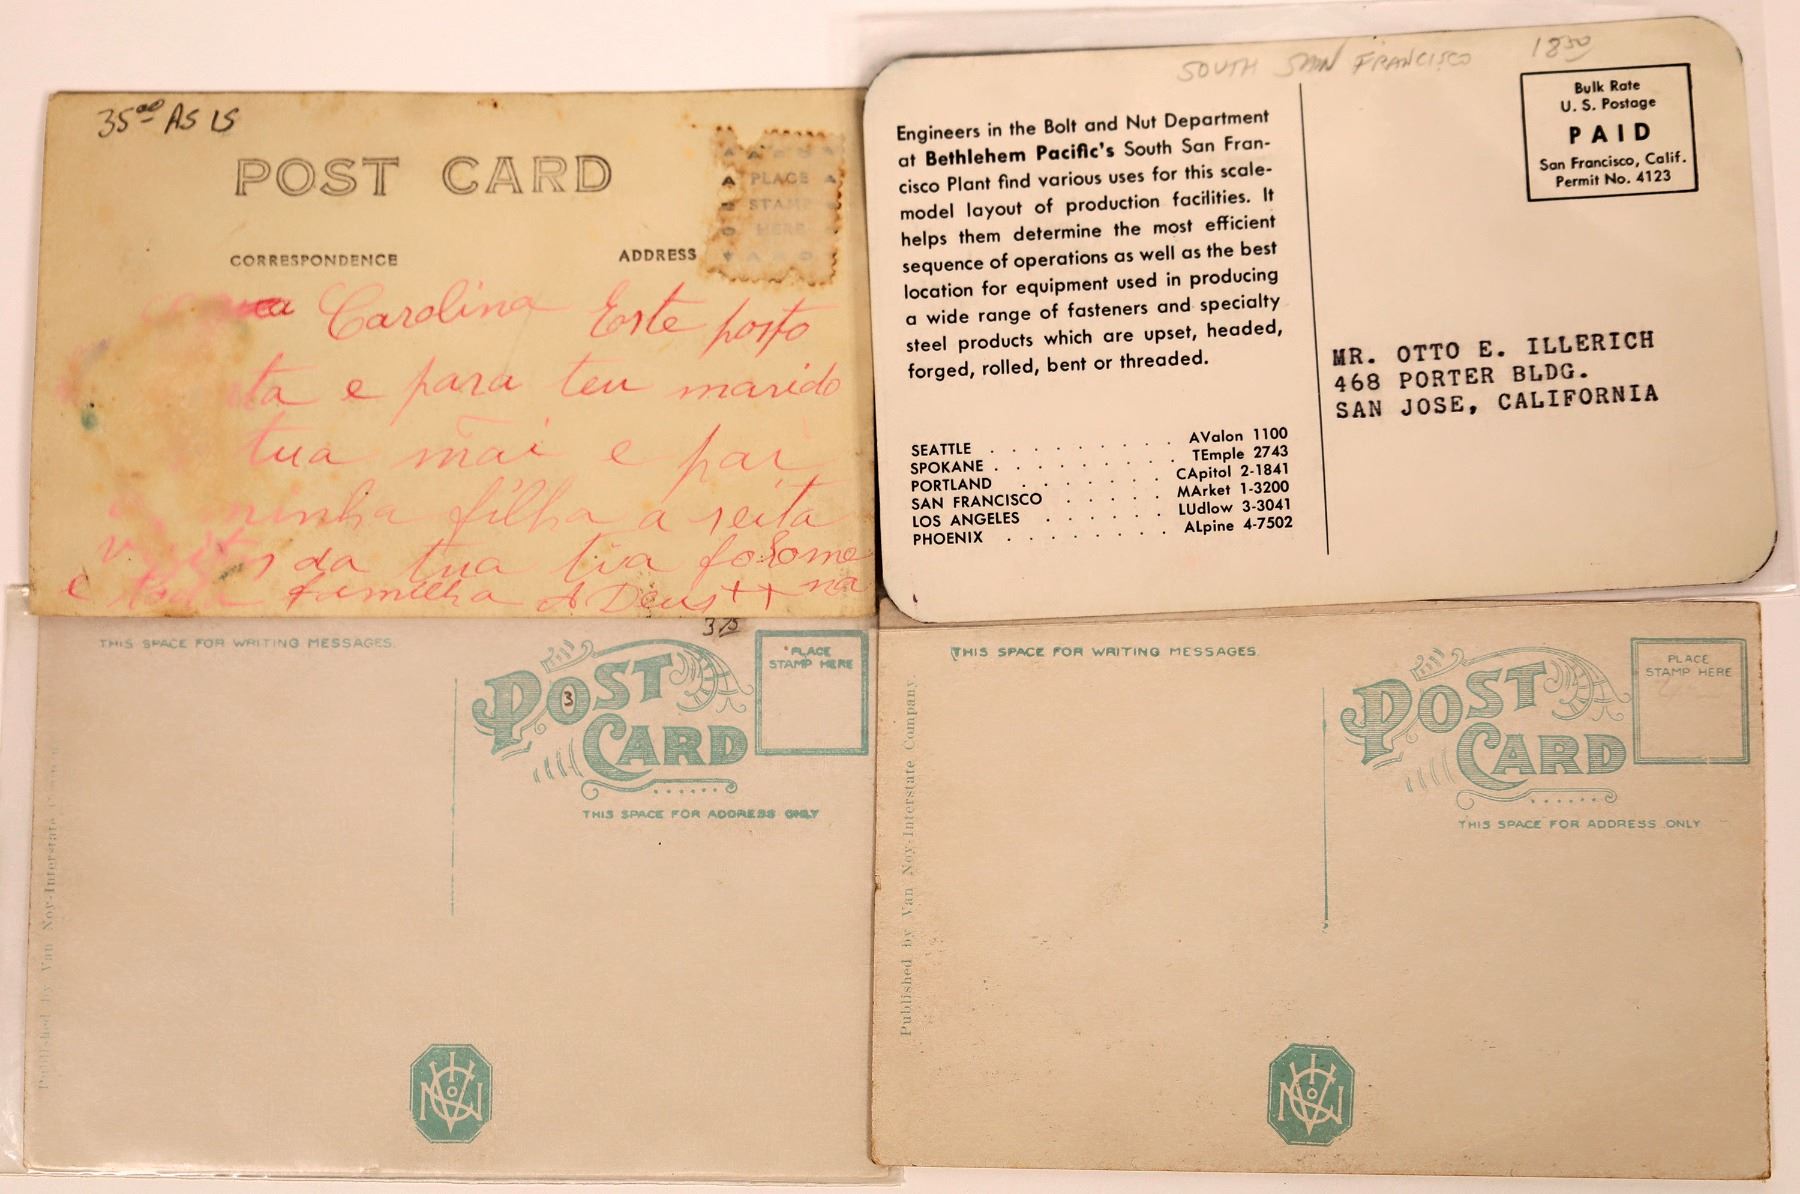 35.00 AS IS
POST CARD
PLACE
STAMP
HERE
CORRESPONDENCE
ADDRESS
Carolina Este posto
ta e para teu marido
tua mãi e pai
minha filha a seita
da tua tia
e familha A Deus ++
SOUTH SAN FRANCISCO 18.50
Engineers in the Bolt and Nut Department
at Bethlehem Pacific's South San Fran-
cisco Plant find various uses for this scale-
model layout of production facilities. It
helps them determine the most efficient
sequence of operations as well as the best
location for equipment used in producing
a wide range of fasteners and specialty
steel products which are upset, headed,
forged, rolled, bent or threaded.
SEATTLE . . . . . . . . . . AValon 1100
SPOKANE . . . . . . . . . TEmple 2743
PORTLAND . . . . . . . CApitol 2-1841
SAN FRANCISCO . . . . . MArket 1-3200
LOS ANGELES . . . . . . LUdlow 3-3041
PHOENIX . . . . . . . . ALpine 4-7502
Bulk Rate
U. S. Postage
PAID
San Francisco, Calif.
Permit No. 4123
MR. OTTO E. ILLERICH
468 PORTER BLDG.
SAN JOSE, CALIFORNIA
THIS SPACE FOR WRITING MESSAGES.
3 75
POST
3
CARD
PLACE
STAMP HERE
THIS SPACE FOR ADDRESS ONLY
Published by Van Noy-Interstate
THIS SPACE FOR WRITING MESSAGES.
POST
CARD
PLACE
STAMP HERE
THIS SPACE FOR ADDRESS ONLY
Published by Van Noy-Interstate Company.